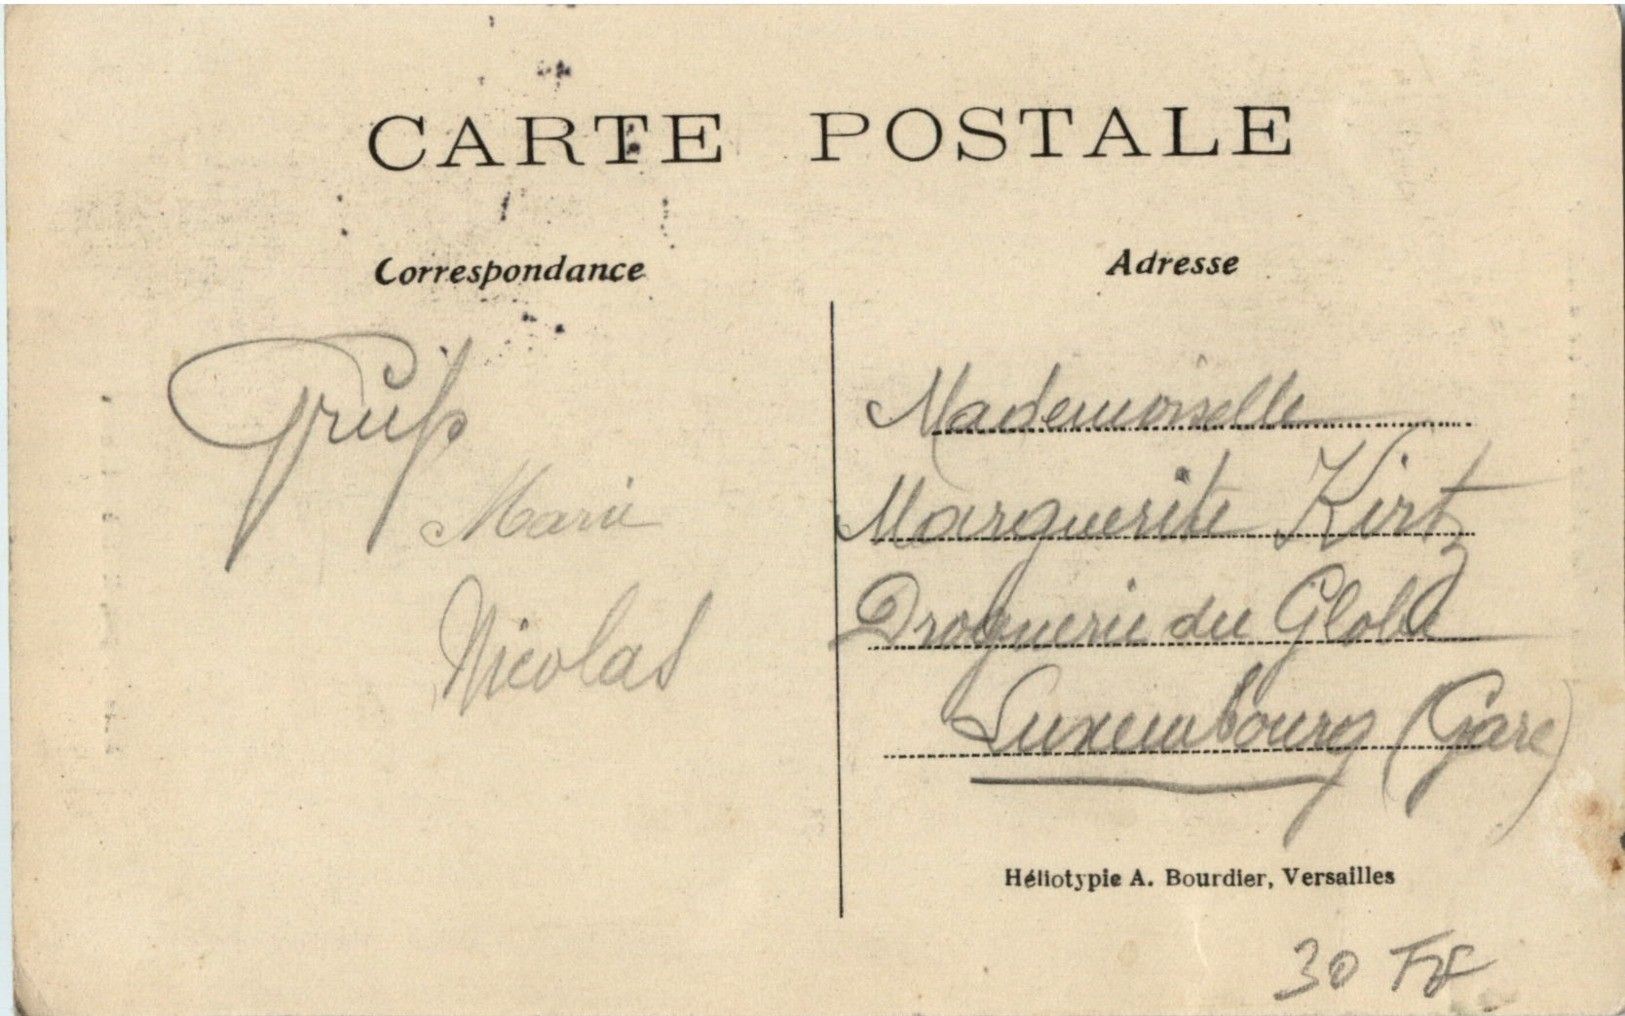 CARTE POSTALE
Correspondance
Gruß
Marie
Nicolas
Adresse
Mademoiselle
Marguerite Kirtz
Droguerie du Globe
Luxembourg (Gare)
Héliotypie A. Bourdier, Versailles
30 FF